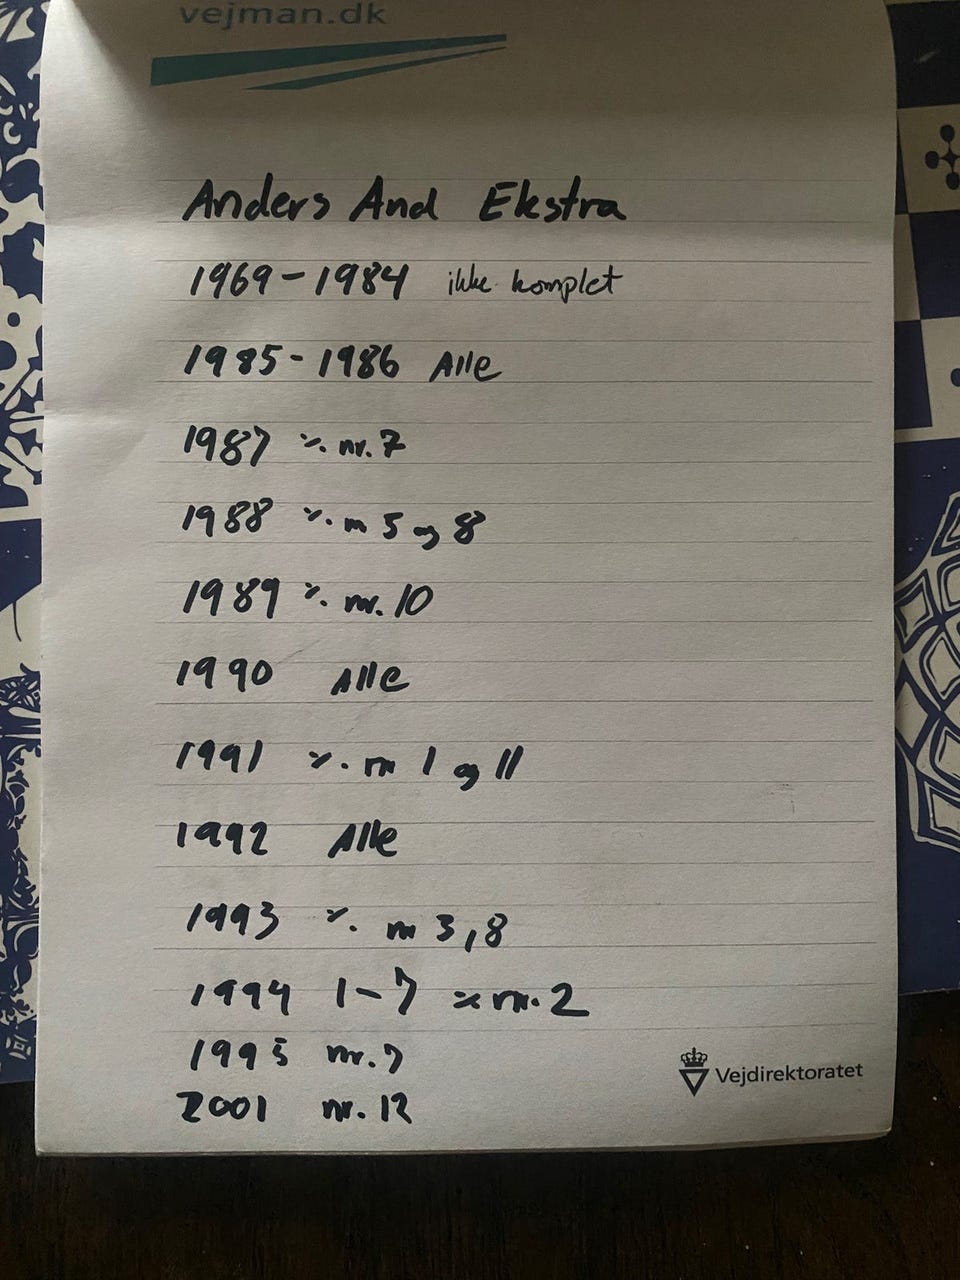 vejman.dk
Anders And Ekstra
1969-1984 ikke komplet
1985-1986 Alle
1987 ÷ nr. 7
1988 ÷ nr 5 og 8
1989 ÷ nr. 10
1990 Alle
1991 ÷ nr 1 og 11
1992 Alle
1993 ÷ nr 3,8
1994 1-7 ÷ nr. 2
1995 nr. 7
2001 nr. 12
Vejdirektoratet